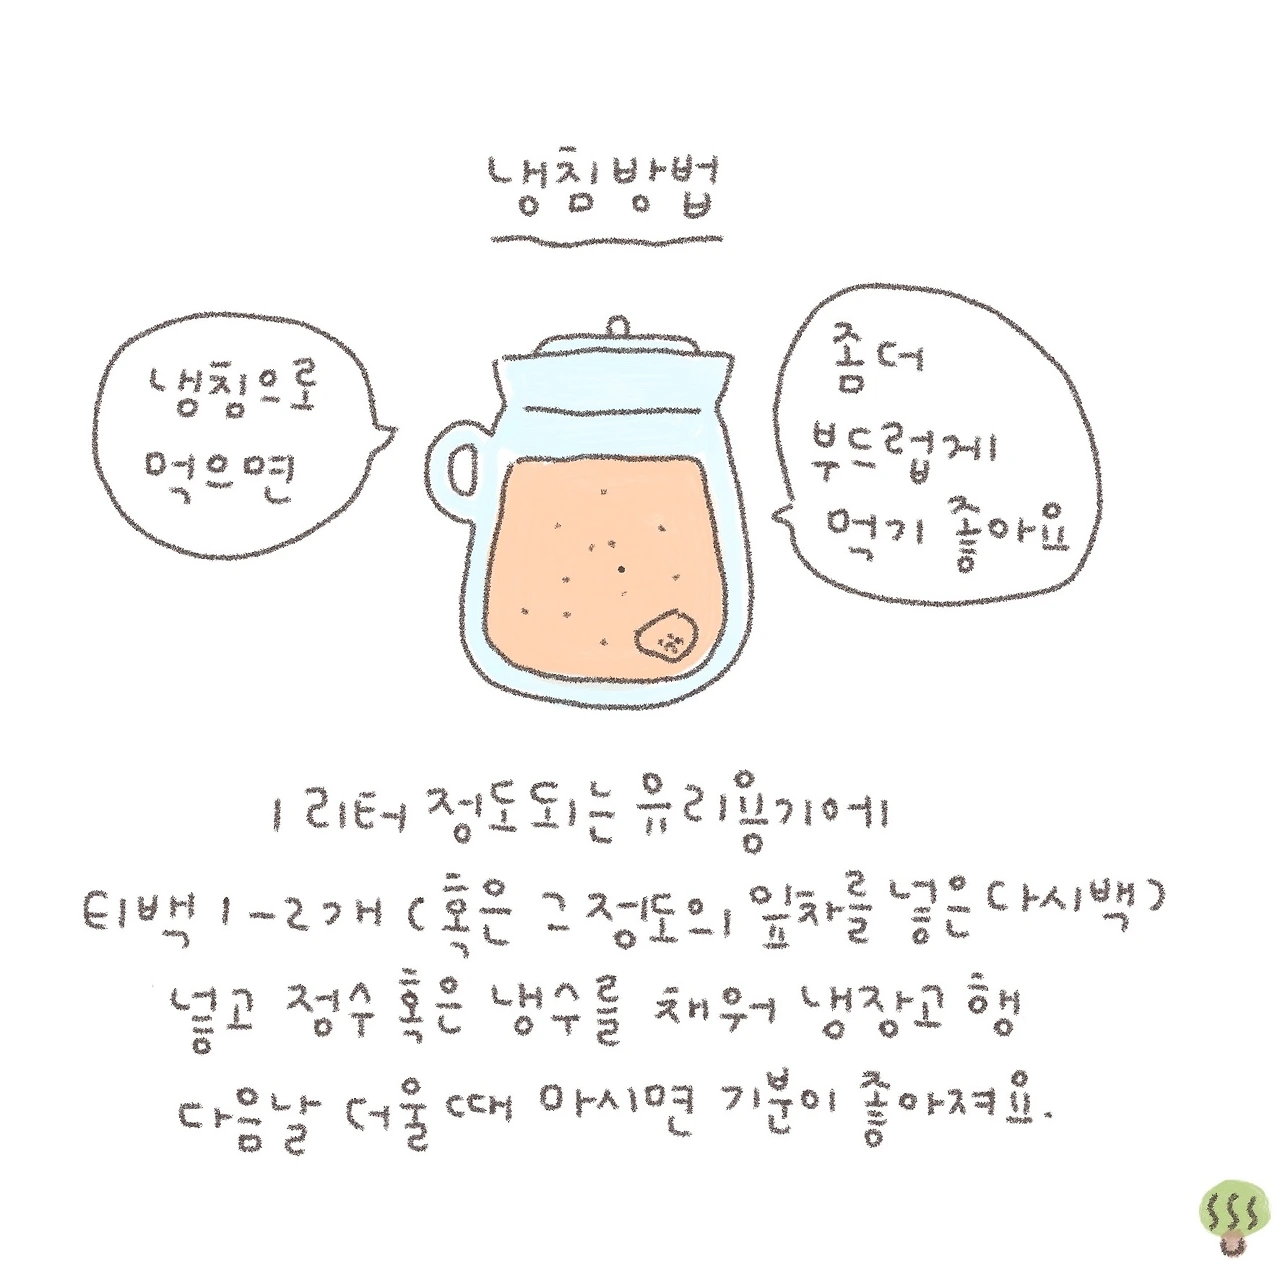 냉침방법
냉침으로
먹으면
좀더
부드럽게
먹기 좋아요
1 리터 정도되는 유리용기에
티백 1-2개 (혹은 그정도의 잎차를 넣은 다시백)
넣고 정수 혹은 냉수를 채워 냉장고 행
다음날 더울때 마시면 기분이 좋아져요.
SSS